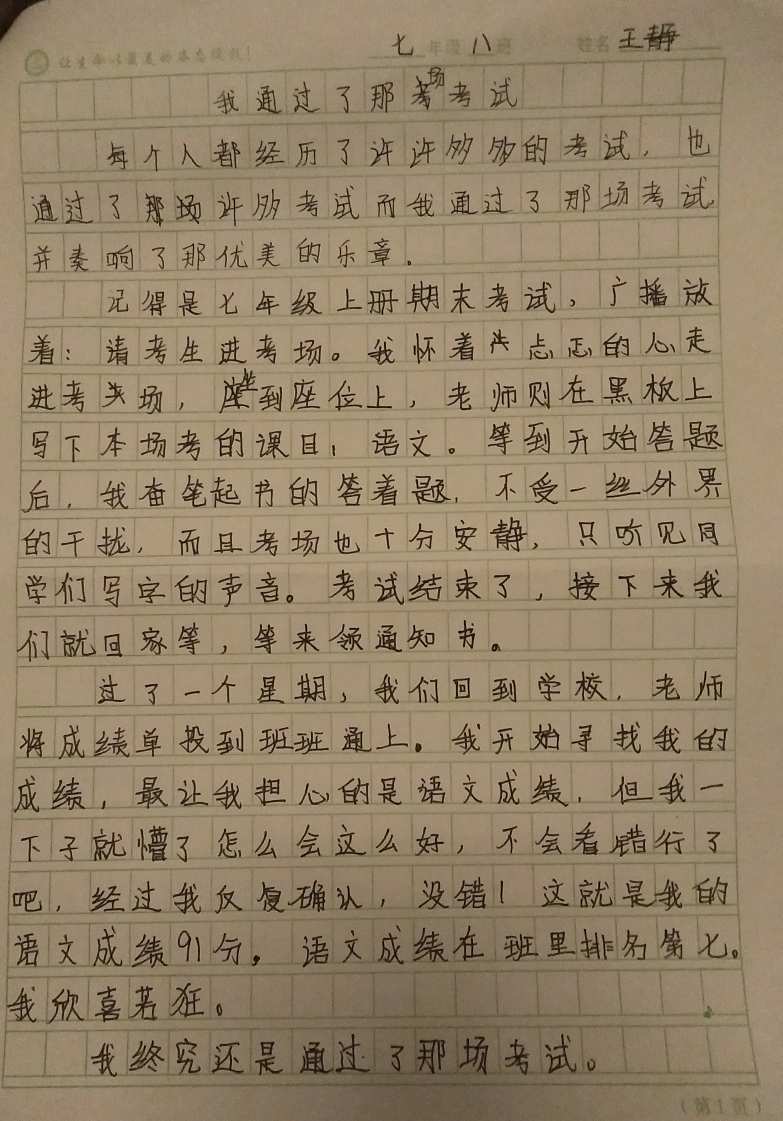 让生命以最美的姿态绽放!
七年级八班 姓名王静
我通过了那场考试
每个人都经历了许许多多的考试,也
通过了那场许多考试而我通过了那场考试,
并奏响了那优美的乐章。
记得是七年级上册期末考试,广播放
着:请考生进考场。我怀着忐忑的心走
进考场,坐到座位上,老师则在黑板上
写下本场考的课目,语文。等到开始答题
后,我奋笔起书的答着题,不受一丝外界
的干扰,而且考场也十分安静,只听见同
学们写字的声音。考试结束了,接下来我
们就回家等,等来领通知书。
过了一个星期,我们回到学校,老师
将成绩单投到班班通上。我开始寻找我的
成绩,最让我担心的是语文成绩,但我一
下子就懵了怎么会这么好,不会看错行了
吧,经过我反复确认,没错!这就是我的
语文成绩91分。语文成绩在班里排名第七。
我欣喜若狂。
我终究还是通过了那场考试。
(第1页)